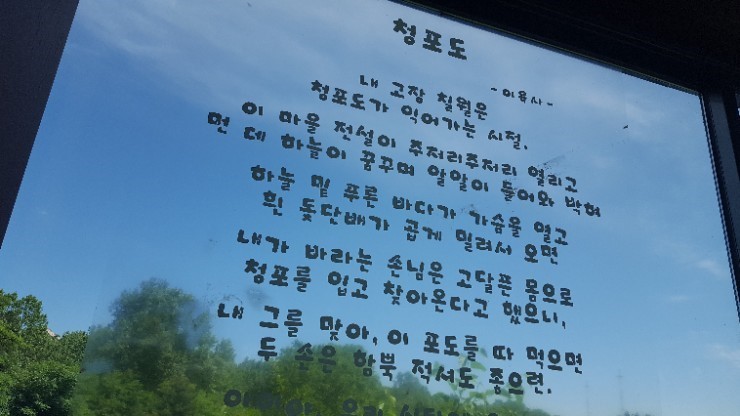 청포도
- 이육사 -
내 고장 칠월은
청포도가 익어가는 시절.
이 마을 전설이 주저리주저리 열리고
먼 데 하늘이 꿈꾸며 알알이 들어와 박혀
하늘 밑 푸른 바다가 가슴을 열고
흰 돛단배가 곱게 밀려서 오면
내가 바라는 손님은 고달픈 몸으로
청포를 입고 찾아온다고 했으니,
내 그를 맞아, 이 포도를 따 먹으면
두 손은 함뿍 적셔도 좋으련.